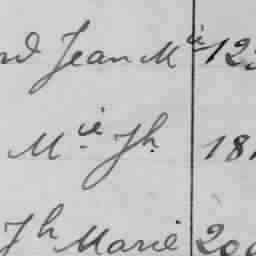 Jean Mie 12
Mie Jh 18
Jh Marie 200